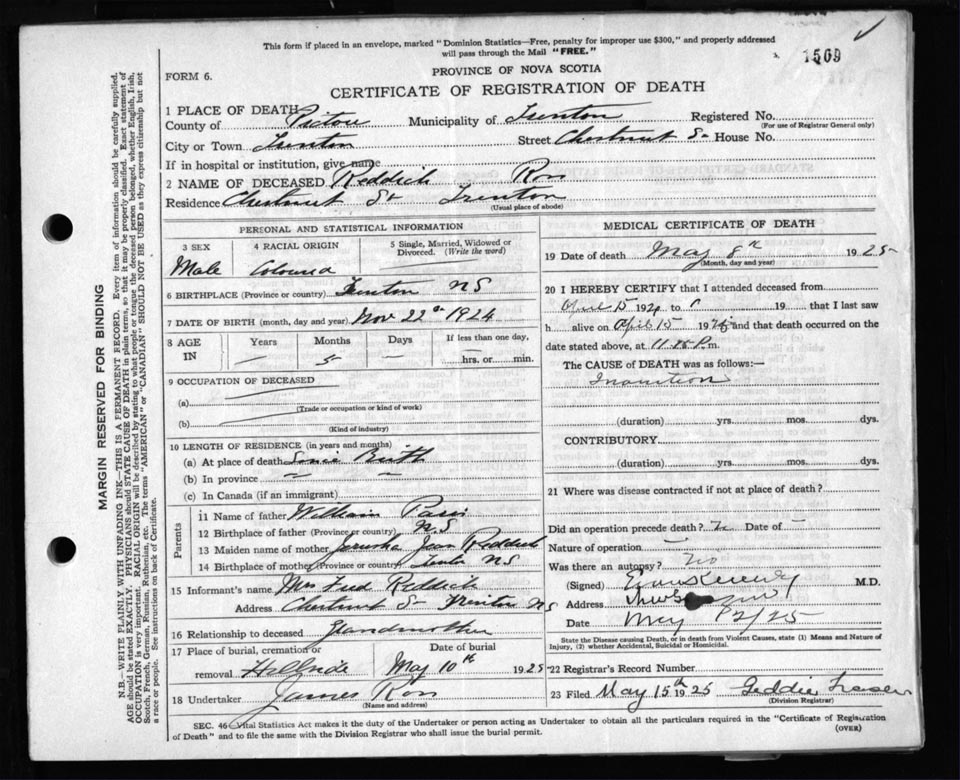 This form if placed in an envelope, marked "Dominion Statistics—Free, penalty for improper use $300," and properly addressed
will pass through the Mail "FREE."
1569
FORM 6.
PROVINCE OF NOVA SCOTIA
CERTIFICATE OF REGISTRATION OF DEATH
1 PLACE OF DEATH
County of Pictou Municipality of Trenton Registered No.
(For use of Registrar General only)
City or Town Trenton Street Chestnut St House No.
If in hospital or institution, give name
2 NAME OF DECEASED Reddick Ron
Residence Chestnut St Trenton
(Usual place of abode)
PERSONAL AND STATISTICAL INFORMATION
3 SEX 4 RACIAL ORIGIN 5 Single, Married, Widowed or
Divorced. (Write the word)
Male Coloured
6 BIRTHPLACE (Province or country) Trenton NS
7 DATE OF BIRTH (month, day and year) Nov 22 1924
8 AGE IN Years Months Days If less than one day,
— 5 — hrs. or min.
9 OCCUPATION OF DECEASED
(a)
(Trade or occupation or kind of work)
(b)
(Kind of industry)
10 LENGTH OF RESIDENCE (in years and months)
(a) At place of death Since Birth
(b) In province "
(c) In Canada (if an immigrant)
Parents
11 Name of father William Paris
12 Birthplace of father (Province or country) N.S
13 Maiden name of mother Jean Reddick
14 Birthplace of mother (Province or country) NS
15 Informant's name Mrs Fred Reddick
Address Chestnut St Trenton NS
16 Relationship to deceased Grandmother
17 Place of burial, cremation or Date of burial
removal May 10th 1925
18 Undertaker James Ron
(Name and address)
MEDICAL CERTIFICATE OF DEATH
19 Date of death May 8th 1925
(Month, day and year)
20 I HEREBY CERTIFY that I attended deceased from
April 15 1924 to 19 that I last saw
h alive on April 15 192 and that death occurred on
date stated above, at 11 P.m.
The CAUSE of DEATH was as follows:—
Inanition
(duration) yrs. mos. dys.
CONTRIBUTORY
(duration) yrs. mos. dys.
21 Where was disease contracted if not at place of death?
Did an operation precede death? No Date of —
Nature of operation —
Was there an autopsy? No
(Signed) M.D.
Address
Date May 12/25
State the Disease causing Death, or in death from Violent Causes, state (1) Means and Nature of
Injury, (2) whether Accidental, Suicidal or Homicidal.
22 Registrar's Record Number
23 Filed May 15th 1925 Geddie Fraser
(Division Registrar)
SEC. 46 Vital Statistics Act makes it the duty of the Undertaker or person acting as Undertaker to obtain all the particulars required in the "Certificate of Registration
of Death" and to file the same with the Division Registrar who shall issue the burial permit.
(OVER)
MARGIN RESERVED FOR BINDING
N.B.—WRITE PLAINLY, WITH UNFADING INK—THIS IS A PERMANENT RECORD. Every item of information should be carefully supplied.
AGE should be stated EXACTLY. PHYSICIANS should STATE CAUSE OF DEATH in plain terms, so that it may be properly classified. Exact statement of
OCCUPATION is very important. RACIAL ORIGIN will be described by stating to what people or tongue the deceased person belonged, whether English, Irish,
Scotch, French, German, Russian, Ruthenian, etc. The terms "AMERICAN" or "CANADIAN" SHOULD NOT BE USED as they express citizenship but not
a race or people. See instructions on back of Certificate.